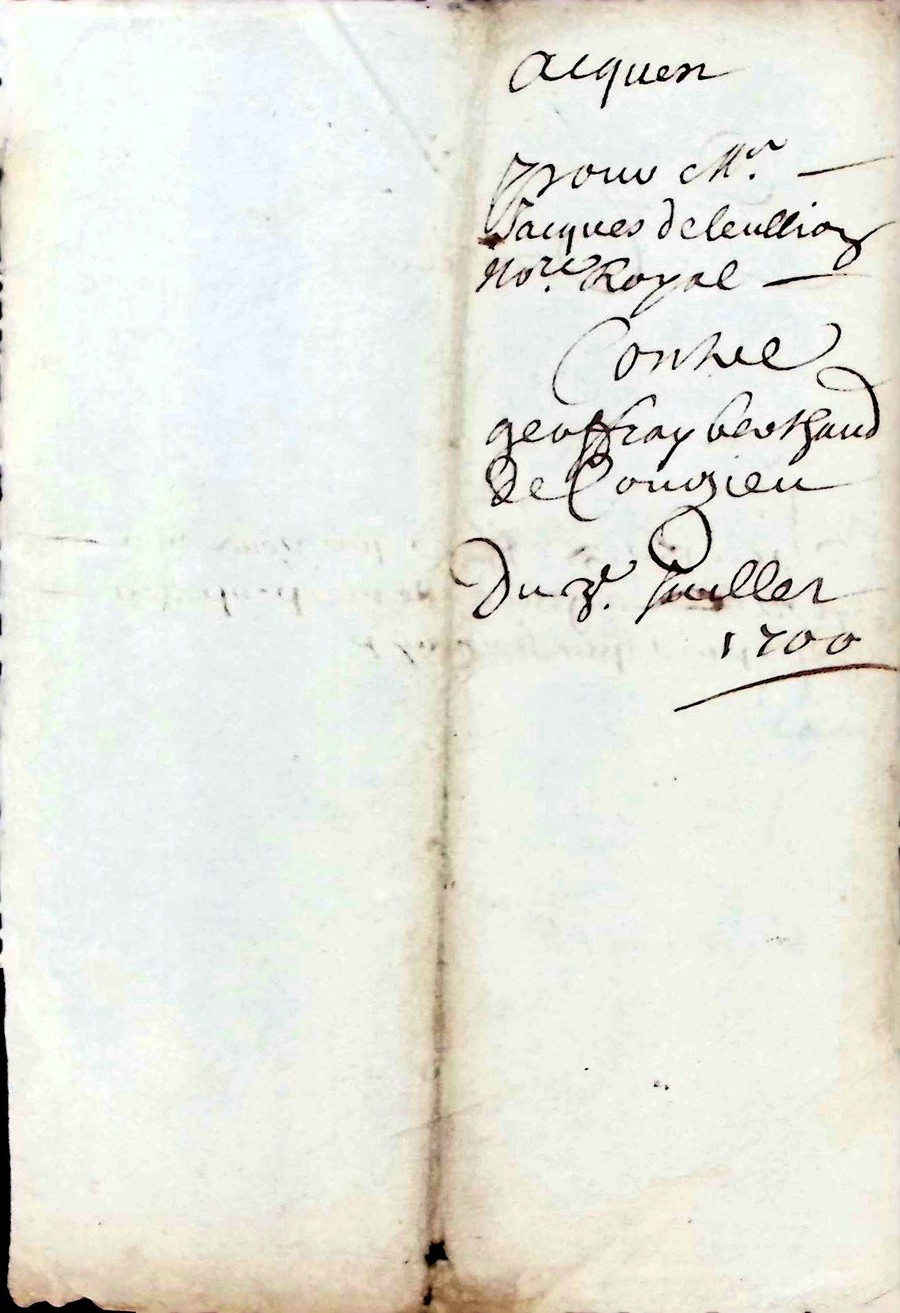 acquest
pour Mr.
Jacques deleullion
Nore. Royal
Contre
geoffray berthaud
De Couzieu
Du 3e. Juillet
1700